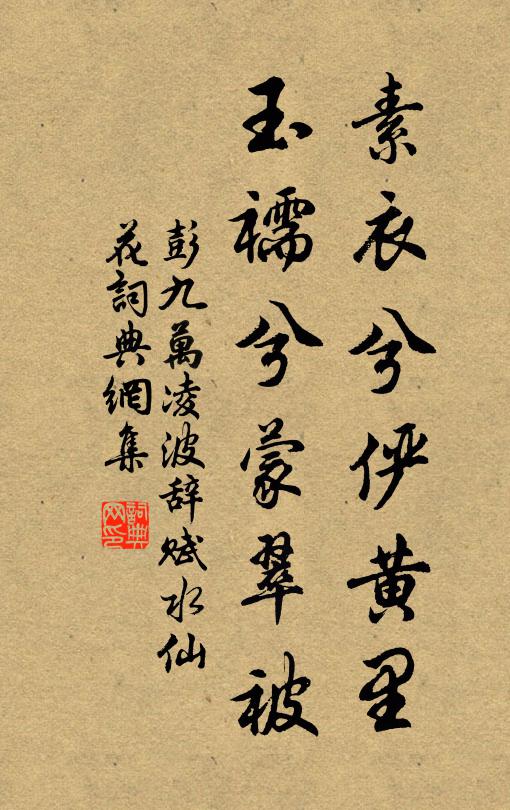 素衣兮俨黄里
玉襦兮蒙翠被
彭九萬凌波辞赋水仙
花詞典網集
詞典网印